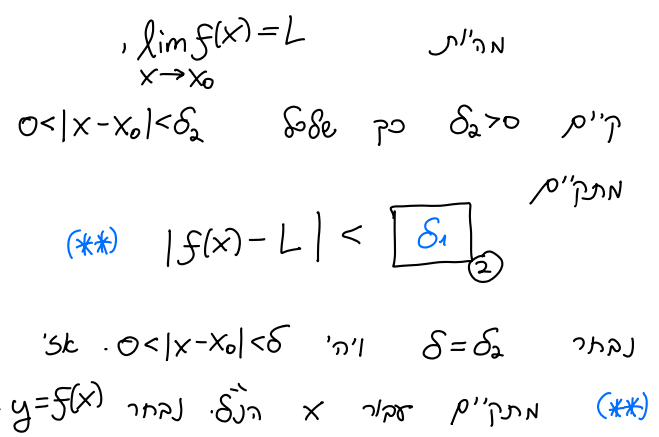 מהיות lim f(x) = L ,
x→x₀
קיים δ₂>0 כך שלכל 0<|x-x₀|<δ₂
מתקיים
|f(x)-L| < δ₁ (**)
②
נבחר δ=δ₂ ויהי 0<|x-x₀|<δ. אזי
(**) מתקיים עבור x הנ"ל. נבחר y=f(x).